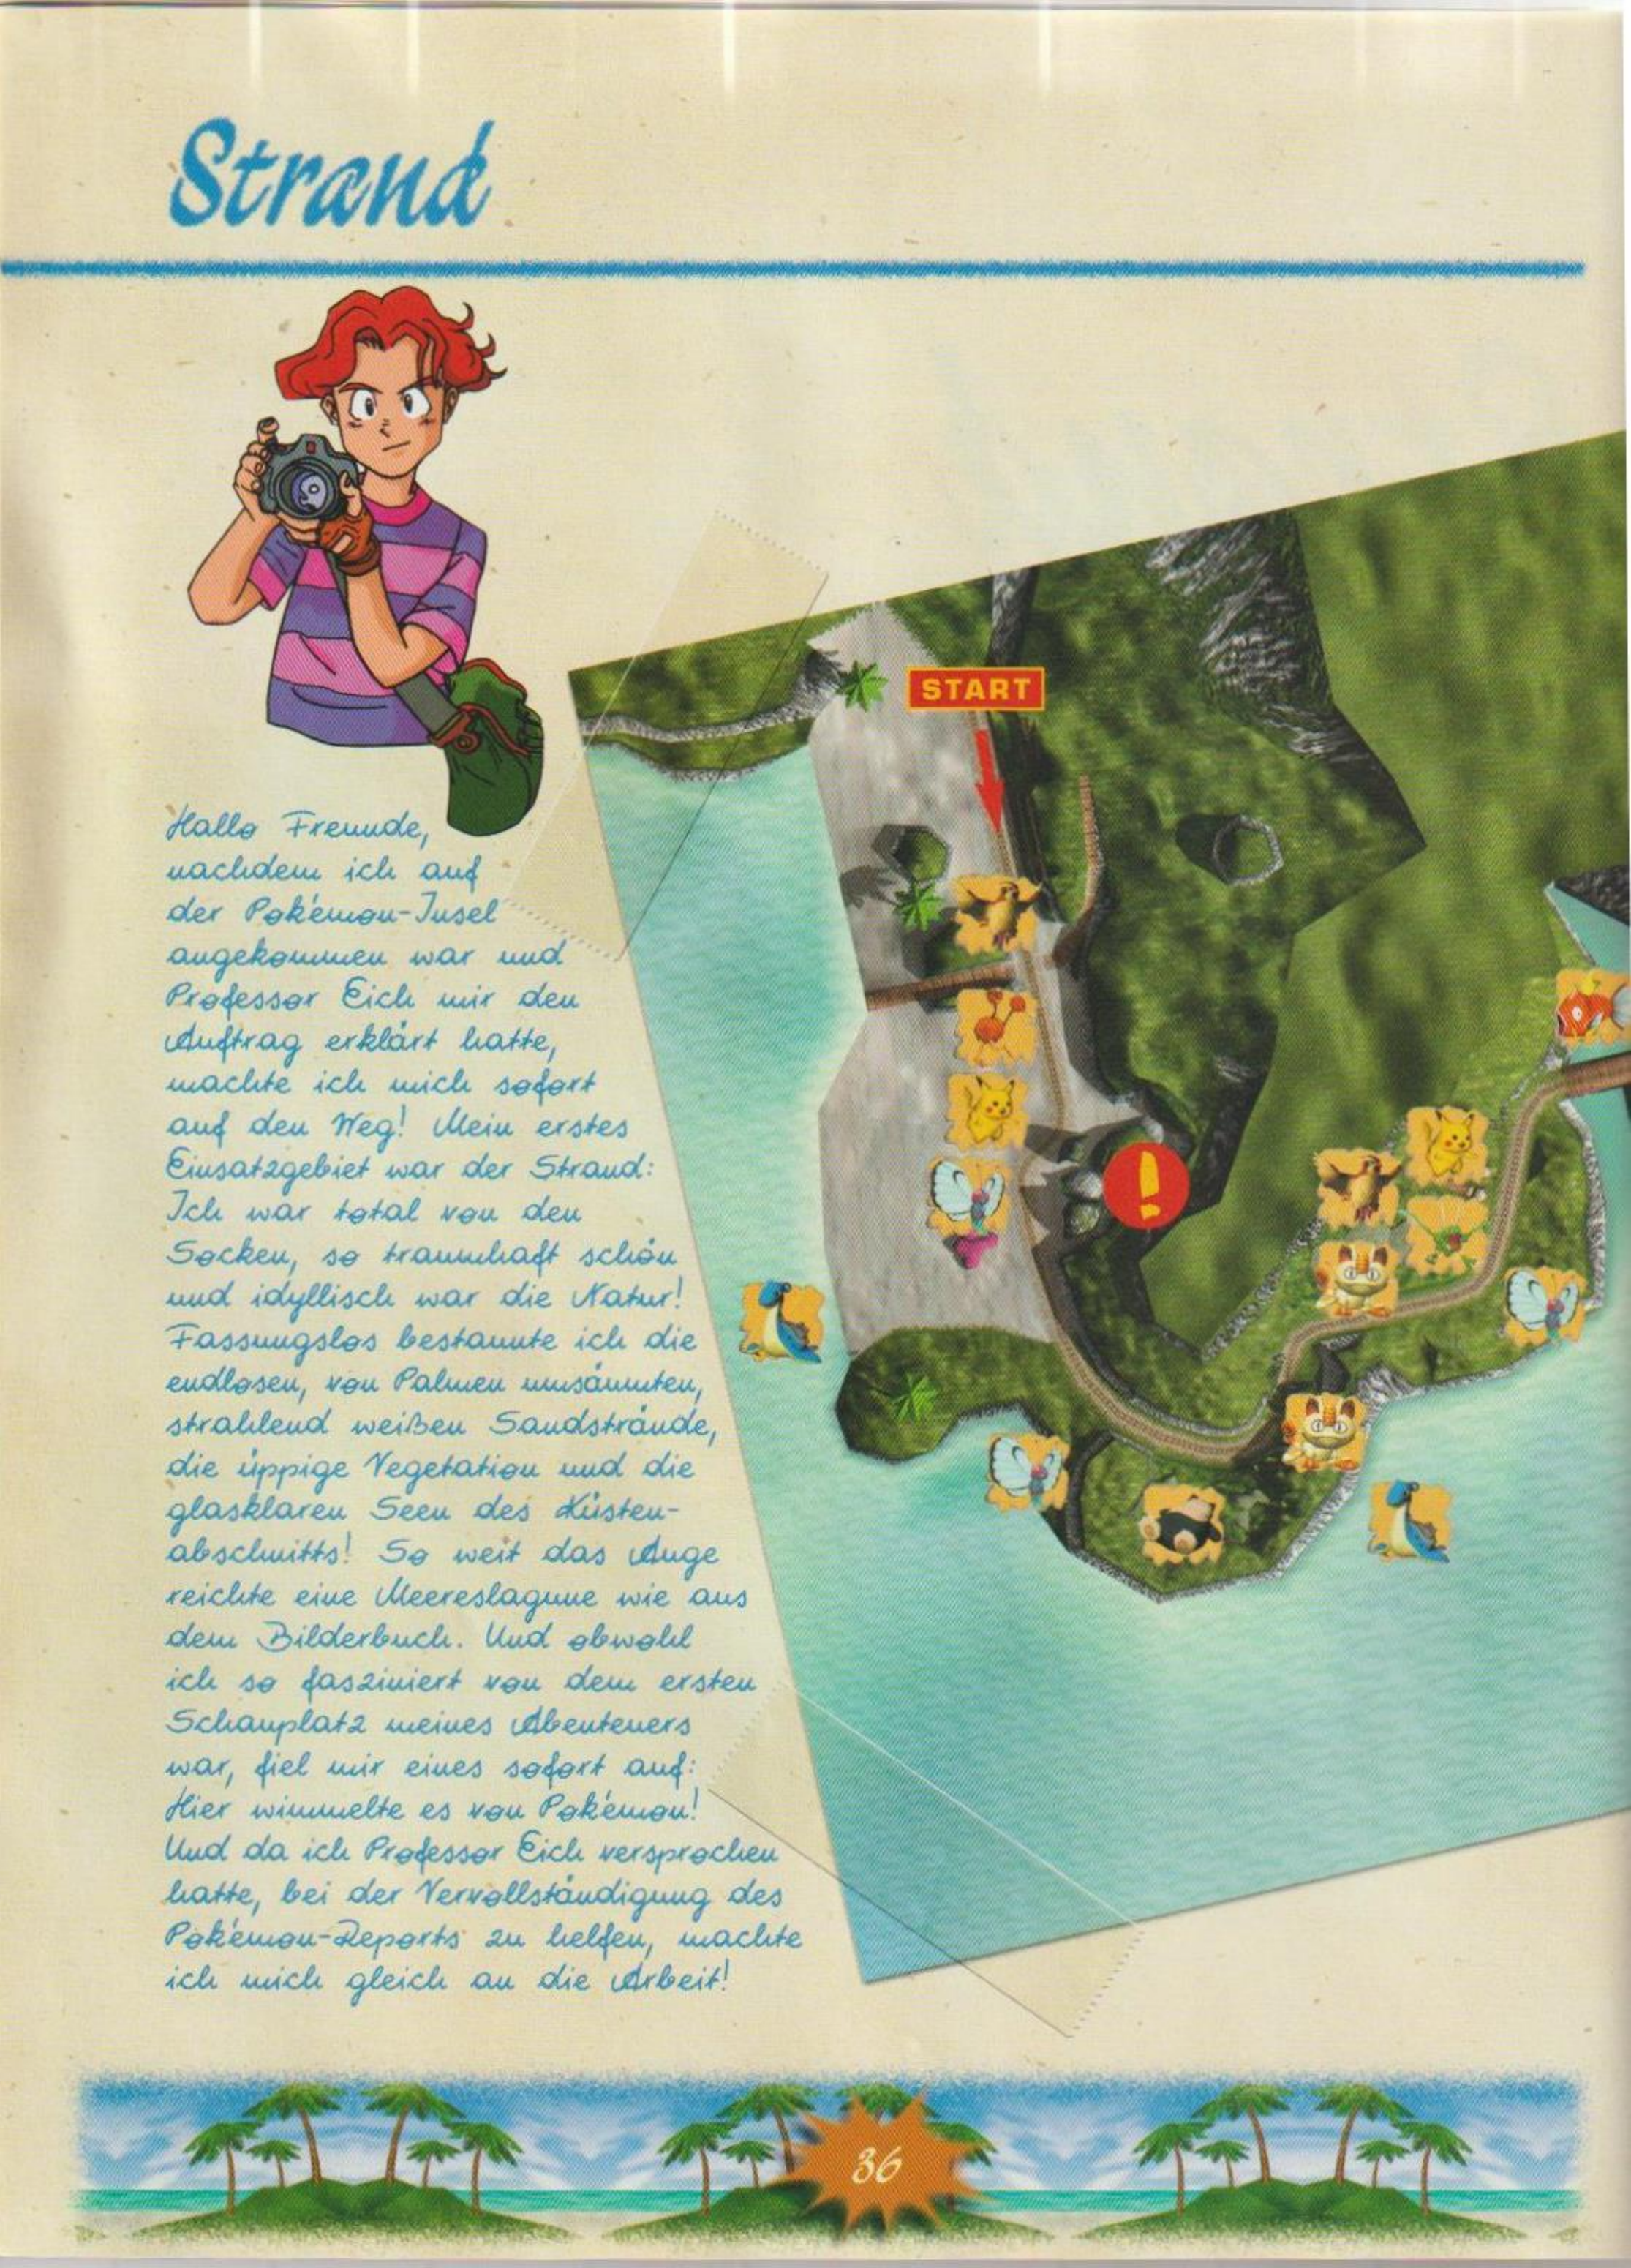 Strand
START
Hallo Freunde,
nachdem ich auf
der Pokémon-Insel
angekommen war und
Professor Eich mir den
Auftrag erklärt hatte,
machte ich mich sofort
auf den Weg! Mein erstes
Einsatzgebiet war der Strand:
Ich war total von den
Socken, so traumhaft schön
und idyllisch war die Natur!
Fassungslos bestaunte ich die
endlosen, von Palmen umsäumten,
strahlend weißen Sandstrände,
die üppige Vegetation und die
glasklaren Seen des Küsten-
abschnitts! So weit das Auge
reichte eine Meereslagune wie aus
dem Bilderbuch. Und obwohl
ich so fasziniert von dem ersten
Schauplatz meines Abenteuers
war, fiel mir eines sofort auf:
Hier wimmelte es von Pokémon!
Und da ich Professor Eich versprochen
hatte, bei der Vervollständigung des
Pokémon-Reports zu helfen, machte
ich mich gleich an die Arbeit!
!
36